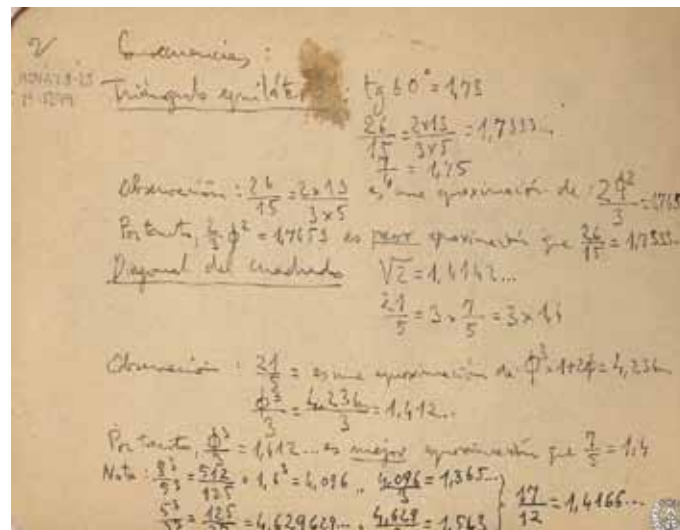 2/ Consecuencias :
Triángulo equilátero : tg 60° = 1,73
26/15 = 2x13/3x5 = 1,7333...
7/4 = 1,75
Observación : 26/15 = 2x13/3x5 es una aproximación de : 2ϕ²/3 = 1,745
Por tanto, 2/3 ϕ² = 1,7453 es peor aproximación que 26/15 = 1,7333...
Diagonal del cuadrado √2 = 1,4142...
21/5 = 3 x 7/5 = 3 x 1,4
Observación : 21/5 = es una aproximación de ϕ³ = 1+2ϕ = 4,236
ϕ³/3 = 4,236/3 = 1,412...
Por tanto, ϕ³/3 = 1,412... es mejor aproximación que 7/5 = 1,4
Nota : 8³/5³ = 512/125 = 1,6³ = 4,096 ,, 4,096/3 = 1,365...
5³/3³ = 125/27 = 4,629629... , 4,629/3 = 1,543 } 17/12 = 1,4166...